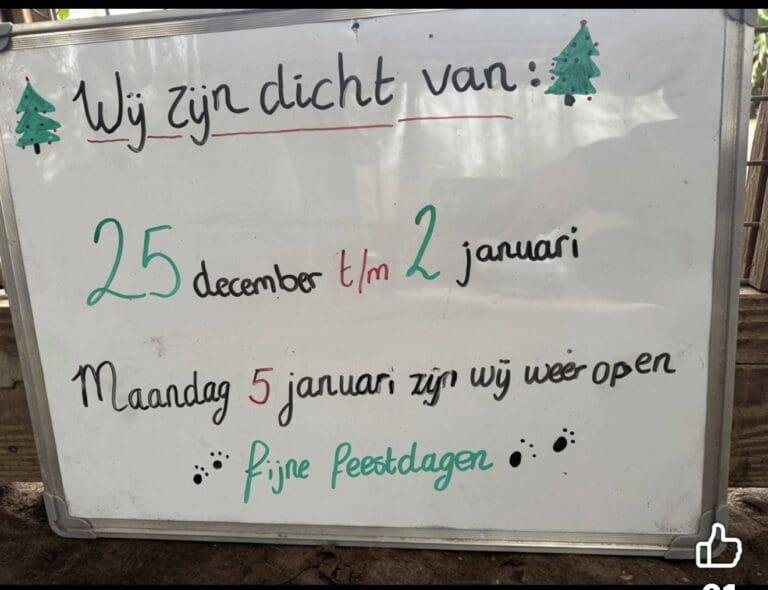 Wij zijn dicht van:
25 december t/m 2 januari
Maandag 5 januari zijn wij weer open
fijne feestdagen